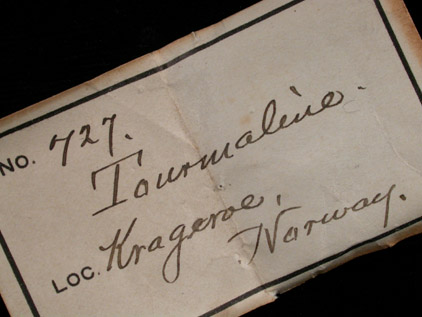 NO. 727.
Tourmaline.
LOC. Krageroe,
Norway.